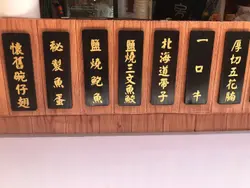 厚切五花腩
一口牛
北海道帶子
鹽燒三文魚鮫
鹽燒鮑魚
秘製魚蛋
懷舊碗仔翅